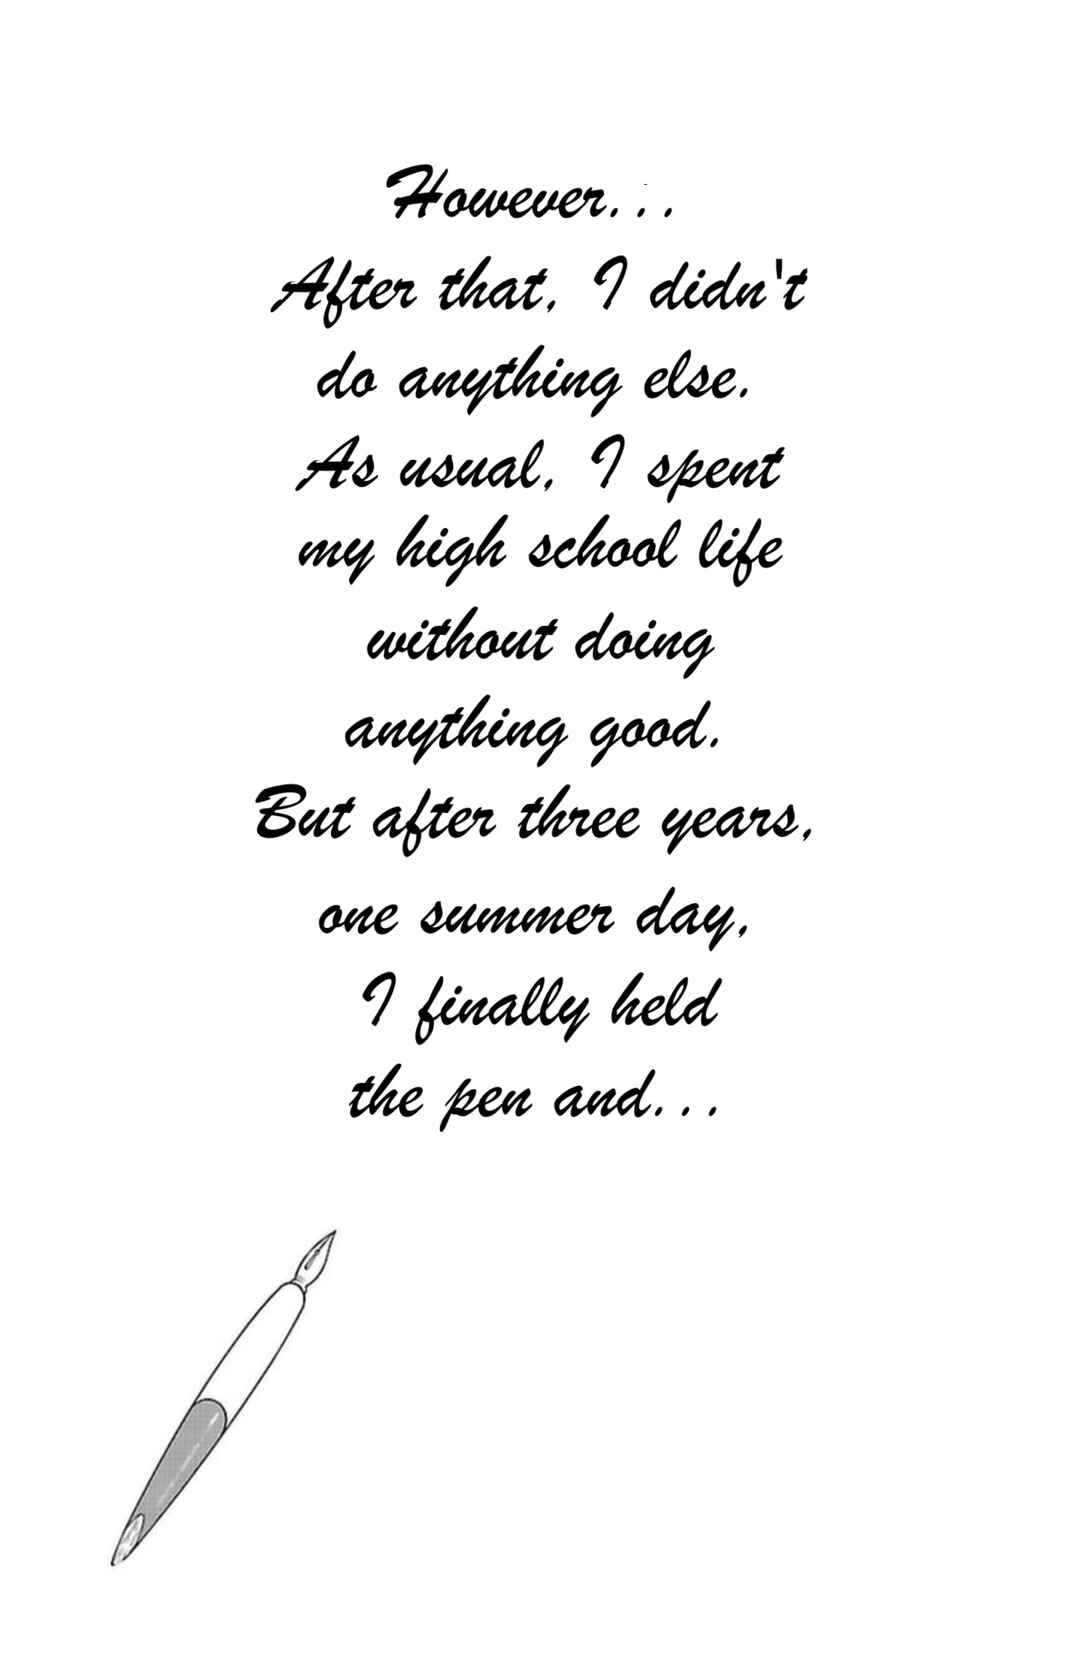 However...
After that, I didn't
do anything else.
As usual, I spent
my high school life
without doing
anything good.
But after three years,
one summer day,
I finally held
the pen and...